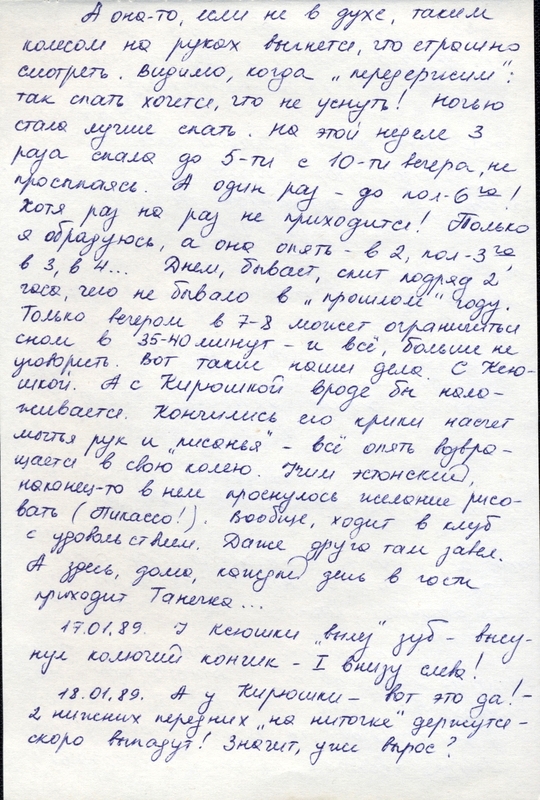 А она-то, если не в духе, таким
колесом на руках выгнется, что страшно
смотреть. Видимо, когда „передержим":
так спать хочется, что не уснуть! Ночью
стала лучше спать. На этой неделе 3
раза спала до 5-ти с 10-ти вечера, не
просыпаясь. А один раз - до пол-6го!
Хотя раз на раз не приходится! Только
я обрадуюсь, а она опять - в 2, пол-3го,
в 3, в 4... Днём, бывает, спит подряд 2
часа, чего не бывало в „прошлом" году.
Только вечером в 7-8 может ограничиться
сном в 35-40 минут - и всё, больше не
уговорить. Вот такие наши дела. С Ксю-
шкой. А с Кирюшкой вроде бы нала-
живается. Кончились его крики насчет
мытья рук и „писанья" - всё опять возвра-
щается в свою колею. Учим эстонский,
наконец-то в нем проснулось желание рисо-
вать (Пикассо!). Вообще, ходит в клуб
с удовольствием. Даже друга там завел.
А здесь, дома, каждый день в гости
приходит Танечка...
17.01.89. У Ксюшки „вылез" зуб - высу-
нул колючий кончик - I внизу слева!
18.01.89. А у Кирюшки - вот это да! -
2 нижних передних „на ниточке" держутся -
скоро выпадут! Значит, уже вырос?